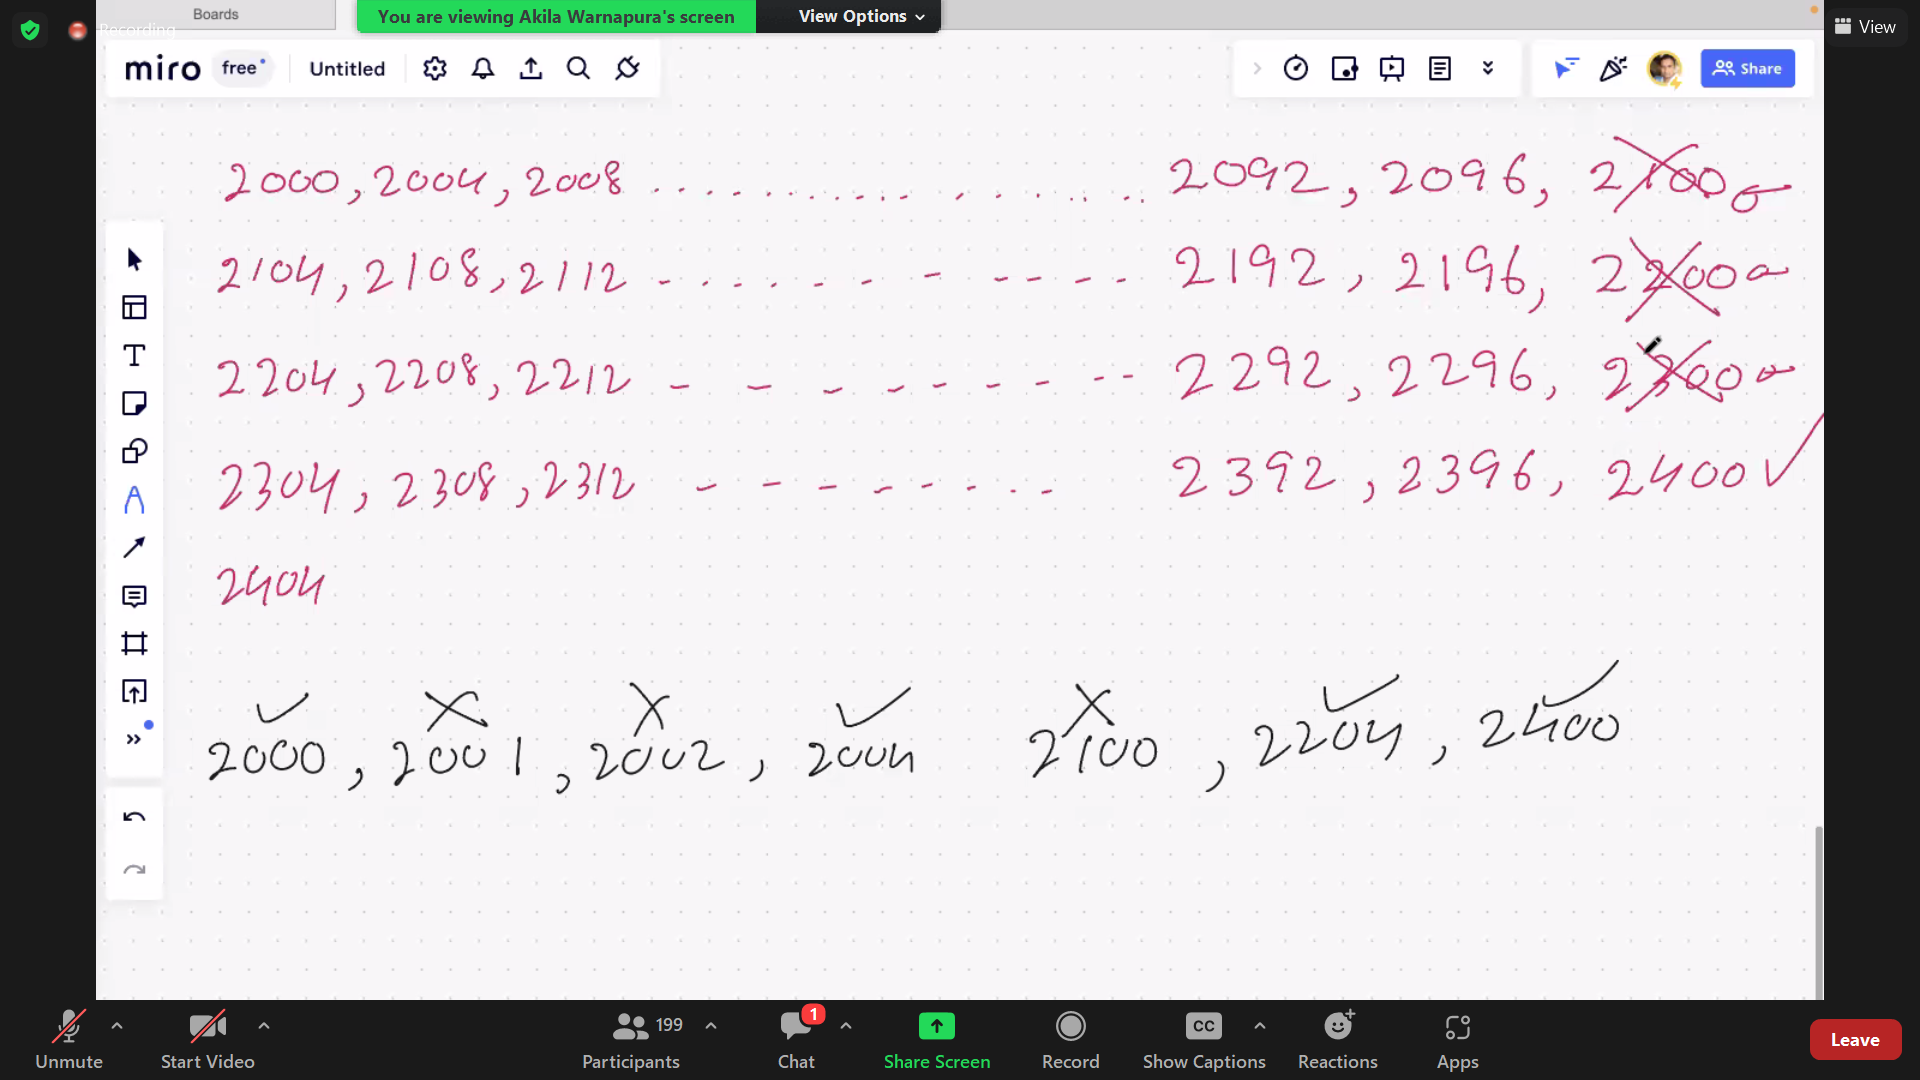 Boards
You are viewing Akila Warnapura's screen View Options
Recording
View
miro free Untitled
Share
2000, 2004, 2008 .................... 2092, 2096, 2100
2104, 2108, 2112 - ...... - - - - - 2192, 2196, 2200
2204, 2208, 2212 - - - - - - - - - 2292, 2296, 2300
2304, 2308, 2312 - - - - - - . . - 2392, 2396, 2400 ✓
2404
✓ X X ✓ X ✓ ✓
2000, 2001, 2002, 2004 2100, 2204, 2400
199 1 CC
Unmute Start Video Participants Chat Share Screen Record Show Captions Reactions Apps Leave